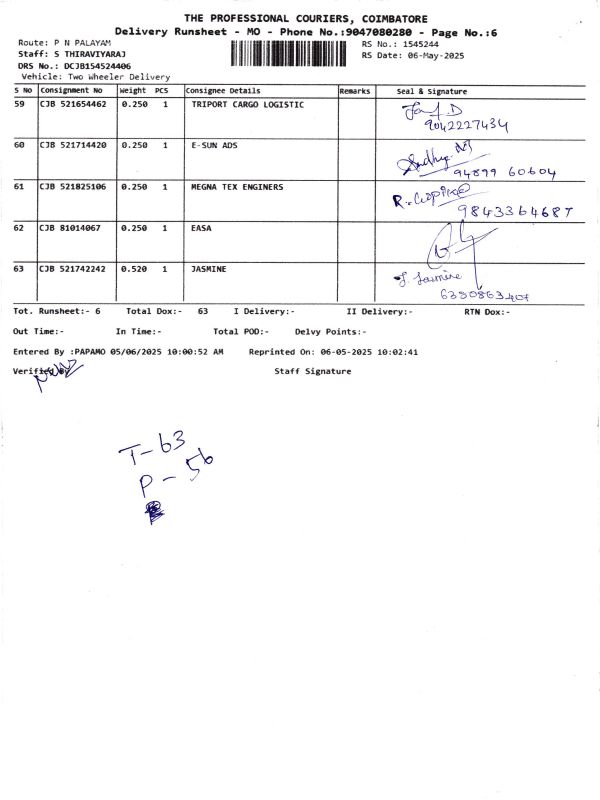 THE PROFESSIONAL COURIERS, COIMBATORE
Delivery Runsheet - MO - Phone No.:9047080280 - Page No.:6
Route: P N PALAYAM
Staff: S THIRAVIYARAJ
DRS No.: DCJB154524406
Vehicle: Two Wheeler Delivery
RS No.: 1545244
RS Date: 06-May-2025
S No Consignment No Weight PCS Consignee Details Remarks Seal & Signature
59 CJB 521654462 0.250 1 TRIPORT CARGO LOGISTIC
9042227434
60 CJB 521714420 0.250 1 E-SUN ADS
94899 60604
61 CJB 521825106 0.250 1 MEGNA TEX ENGINERS R. Gopika
9843364687
62 CJB 81014067 0.250 1 EASA
63 CJB 521742242 0.520 1 JASMINE J. Jasmine
6380863407
Tot. Runsheet:- 6 Total Dox:- 63 I Delivery:- II Delivery:- RTN Dox:-
Out Time:- In Time:- Total POD:- Delvy Points:-
Entered By :PAPAMO 05/06/2025 10:00:52 AM Reprinted On: 06-05-2025 10:02:41
Verified By Staff Signature
T-63
P-56